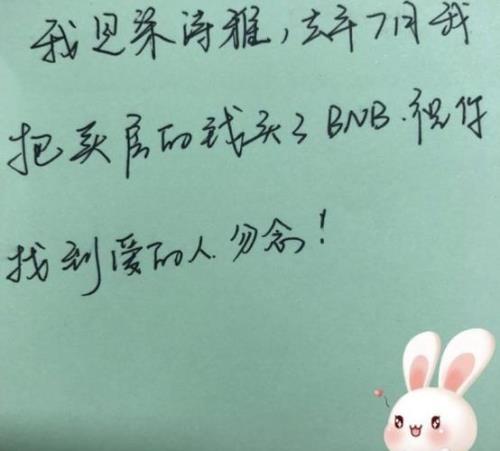 我是梁诗雅，去年7月我
把买房的钱买了BNB.祝你
找到爱的人.勿念！